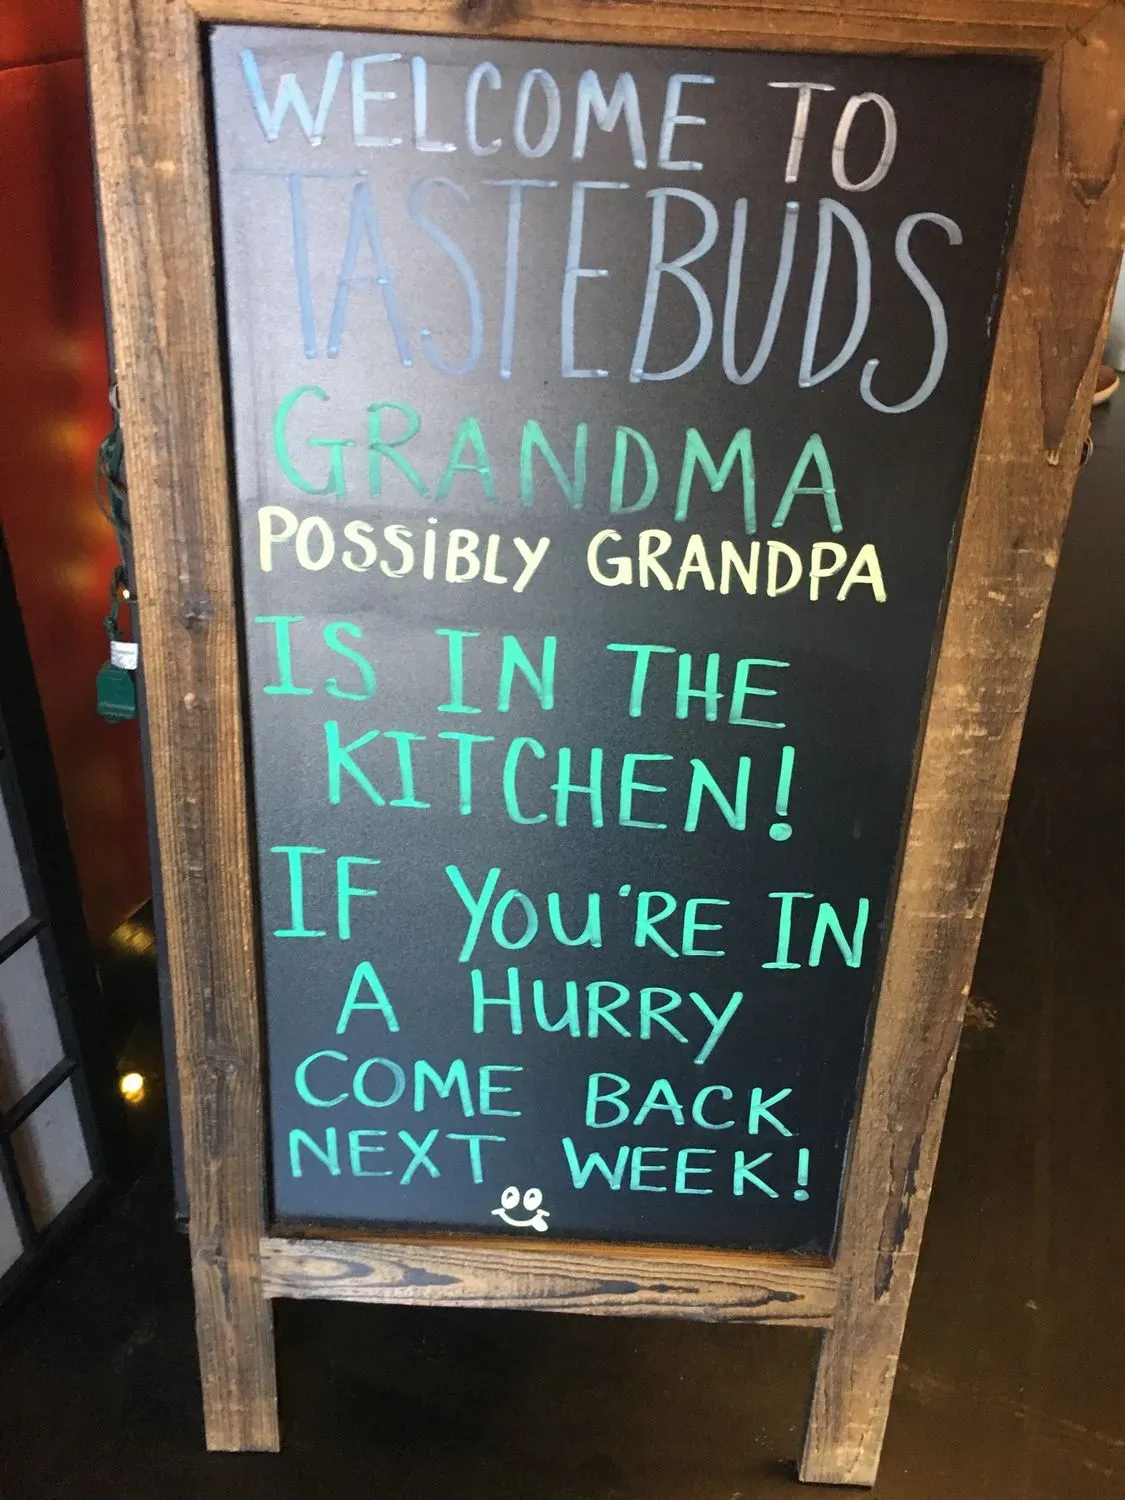 WELCOME TO
TASTEBUDS
GRANDMA
POSSIBLY GRANDPA
IS IN THE
KITCHEN!
IF YOU'RE IN
A HURRY
COME BACK
NEXT WEEK!